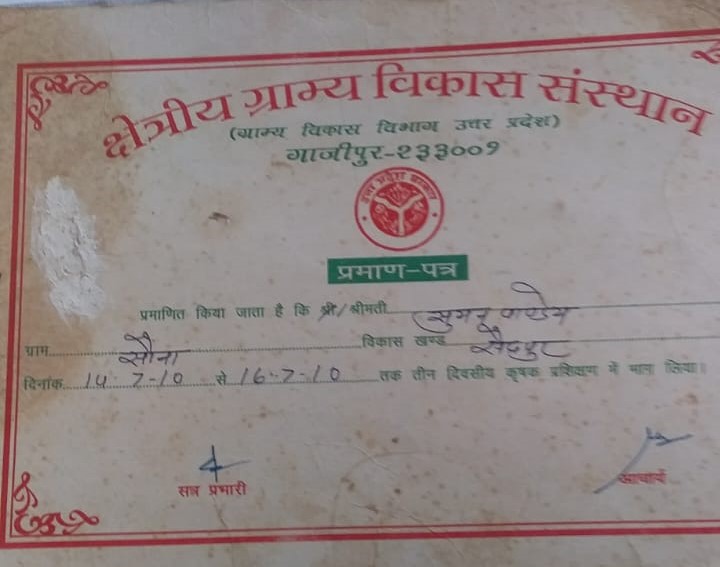 क्षेत्रीय ग्राम्य विकास संस्थान
(ग्राम्य विकास विभाग उत्तर प्रदेश)
गाजीपुर-२३३००१
प्रमाण-पत्र
प्रमाणित किया जाता है कि श्री/श्रीमती सुमन पाण्डेय
ग्राम सौना विकास खण्ड सैदपुर
दिनांक 14-7-10 से 16-7-10 तक तीन दिवसीय कृषक प्रशिक्षण में भाग लिया।
सत्र प्रभारी
आचार्य